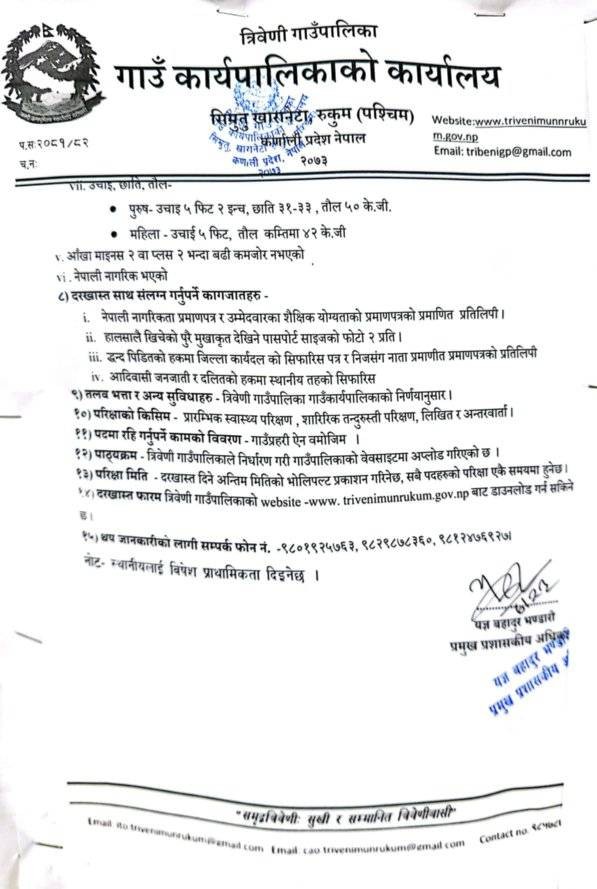 त्रिवेणी गाउँपालिका
गाउँ कार्यपालिकाको कार्यालय
सिम्रुतु खारानेटा, रुकुम (पश्चिम)
कर्णाली प्रदेश नेपाल
२०७३
Website:www.trivenimunruku
m.gov.np
Email: tribenigp@gmail.com
प.सः२०८१/८२
च.नः
vii. उचाइ, छाति, तौल-
• पुरुष- उचाइ ५ फिट २ इन्च, छाति ३१-३३ , तौल ५० के.जी.
• महिला - उचाई ५ फिट, तौल कम्तिमा ४२ के.जी
v. आँखा माइनस २ वा प्लस २ भन्दा बढी कमजोर नभएको
vi. नेपाली नागरिक भएको
८) दरखास्त साथ संलग्न गर्नुपर्ने कागजातहरु -
i. नेपाली नागरिकता प्रमाणपत्र र उम्मेदवारका शैक्षिक योग्यताको प्रमाणपत्रको प्रमाणित प्रतिलिपी ।
ii. हालसालै खिचेको पुरै मुखाकृत देखिने पासपोर्ट साइजको फोटो २ प्रति ।
iii. द्धन्द पिडितको हकमा जिल्ला कार्यदल को सिफारिस पत्र र निजसंग नाता प्रमाणीत प्रमाणपत्रको प्रतिलिपी
iv. आदिवासी जनजाती र दलितको हकमा स्थानीय तहको सिफारिस
९) तलव भत्ता र अन्य सुविधाहरु - त्रिवेणी गाउँपालिका गाउँकार्यपालिकाको निर्णयानुसार ।
१०) परिक्षाको किसिम - प्रारम्भिक स्वास्थ्य परिक्षण , शारिरिक तन्दुरुस्ती परिक्षण, लिखित र अन्तरवार्ता ।
११) पदमा रहि गर्नुपर्ने कामको विवरण - गाउँप्रहरी ऐन वमोजिम ।
१२) पाठ्यक्रम - त्रिवेणी गाउँपालिकाले निर्धारण गरी गाउँपालिकाको वेवसाइटमा अप्लोड गरिएको छ ।
१३) परिक्षा मिति - दरखास्त दिने अन्तिम मितिको भोलिपल्ट प्रकाशन गरिनेछ, सबै पदहरुको परिक्षा एकै समयमा हुनेछ।
१४) दरखास्त फारम त्रिवेणी गाउँपालिकाको website -www. trivenimunrukum.gov.np बाट डाउनलोड गर्न सकिने
छ ।
१५) थप जानकारीको लागी सम्पर्क फोन नं. -९८०१९२५७६३, ९८२९८७८३६०, ९८१२४७६९२७।
नोट- स्थानीयलाई विषेश प्राथामिकता दिइनेछ ।
यज्ञ बहादुर भण्डारी
प्रमुख प्रशासकीय अधिकृत
यज्ञ बहादुर
प्रमुख प्रशासकीय
"समृद्धत्रिवेणीः सुखी र सम्मानित त्रिवेणीवासी"
Email: ito.trivenimunrukum@gmail.com Email: cao.trivenimunrukum@gmail.com Contact no.